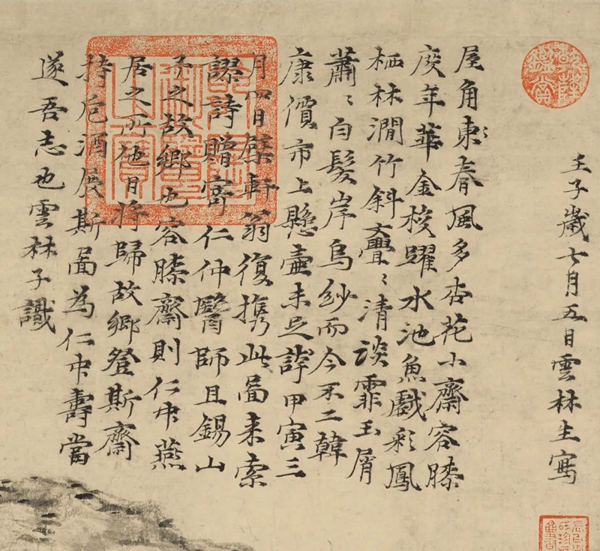 壬子歲七月五日雲林生寫
屋角東春風多杏花小齋容膝
度年華金梭躍水池魚戲彩鳳
栖林澗竹斜亹〻清談霏玉屑
蕭〻白髮岸烏紗而今不二韓
康價市上懸壺未足誇甲寅三
月四日檗軒翁復攜此啚來索
謬詩贈寄仁仲醫師且錫山
予之故鄉也容膝齋則仁中燕
居之所他日將歸故鄉登斯齋
持巵酒展斯啚為仁中壽當
遂吾志也雲林子識